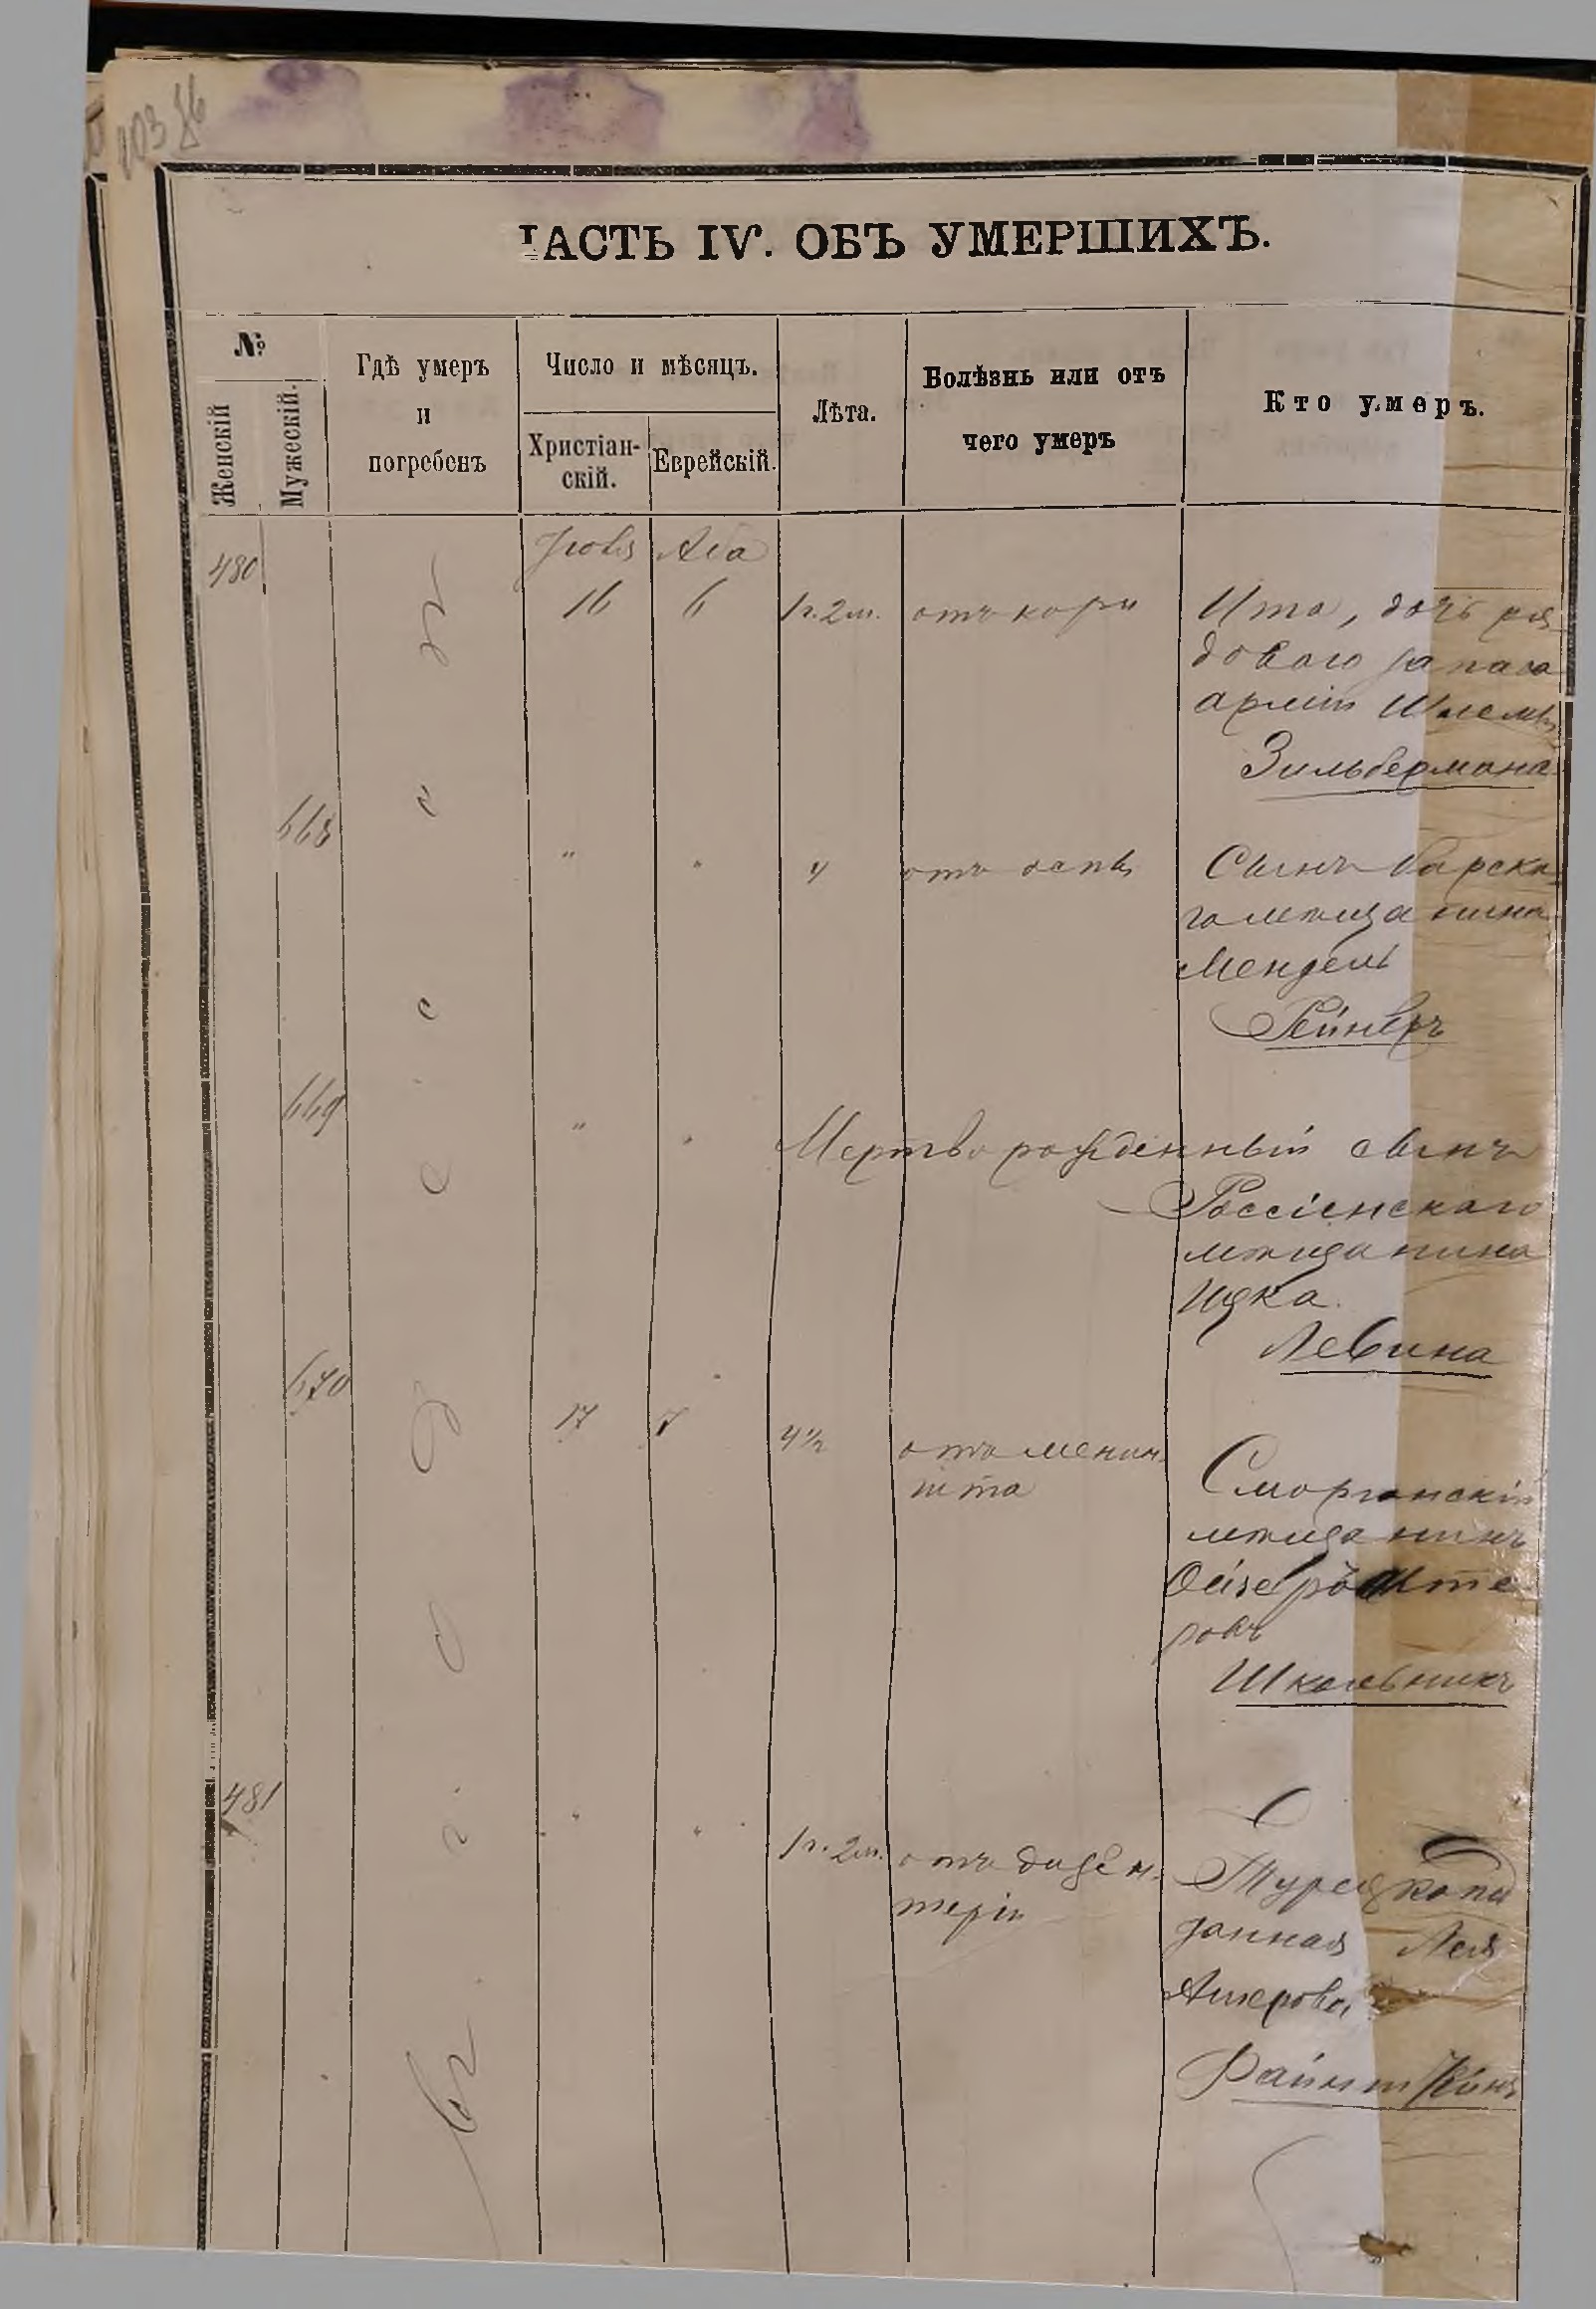 ЧАСТЬ IV. ОБЪ УМЕРШИХЪ.
№
Женскій
Мужескій.
Гдѣ умеръ
и
погребенъ
Число и мѣсяцъ.
Христіан-
скій.
Еврейскій.
Лѣта.
Болѣзнь или отъ
чего умеръ
Кто умеръ.
въ г. Одессѣ
480
Іюля Аба
16 6 1 г. 2 м. отъ кори Ита, дочь ря-
доваго запаса
арміи Шлемы
Зильбермана
668
" " 4 отъ оспы Сынъ барска-
го мѣщанина
Мендель
Рейнеръ
669
" " Мертворожденный сынъ
Россіенскаго
мѣщанина
Ицка
Левина
670
17 7 4½ отъ менин-
гита
Сморгонскій
мѣщанинъ
ровъ
Школьникъ
481
" " 1 г. 2 м. отъ дизен-
теріи
Турецкопод
данная Лея
Ашерова